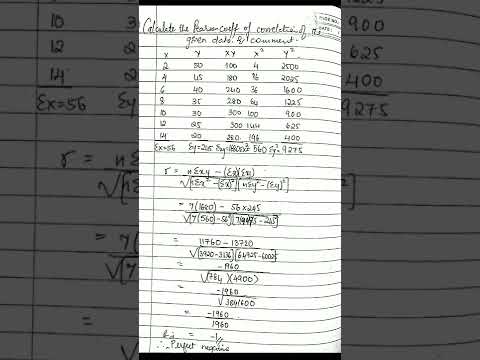 Calculate the Pearson coeff of correlation of
given data & comment.
x y xy x² y²
2 50 100 4 2500
4 45 180 16 2025
6 40 240 36 1600
8 35 280 64 1225
10 30 300 100 900
12 25 300 144 625
14 20 280 196 400
Σx=56 Σy=245 Σxy=1680 Σx² 560 Σy²=9275
r = nΣxy - (Σx)(Σy)
√[nΣx² - (Σx)²][nΣy² - (Σy)²]
= 7(1680) - 56×245
√[7(560)-56²][7(9275)-245²]
= 11760 - 13720
√(3920-3136)(64925-60025)
= -1960
√(784)(4900)
= -1960
√3841600
= -1960
1960
= -1//
∴ Perfect negative